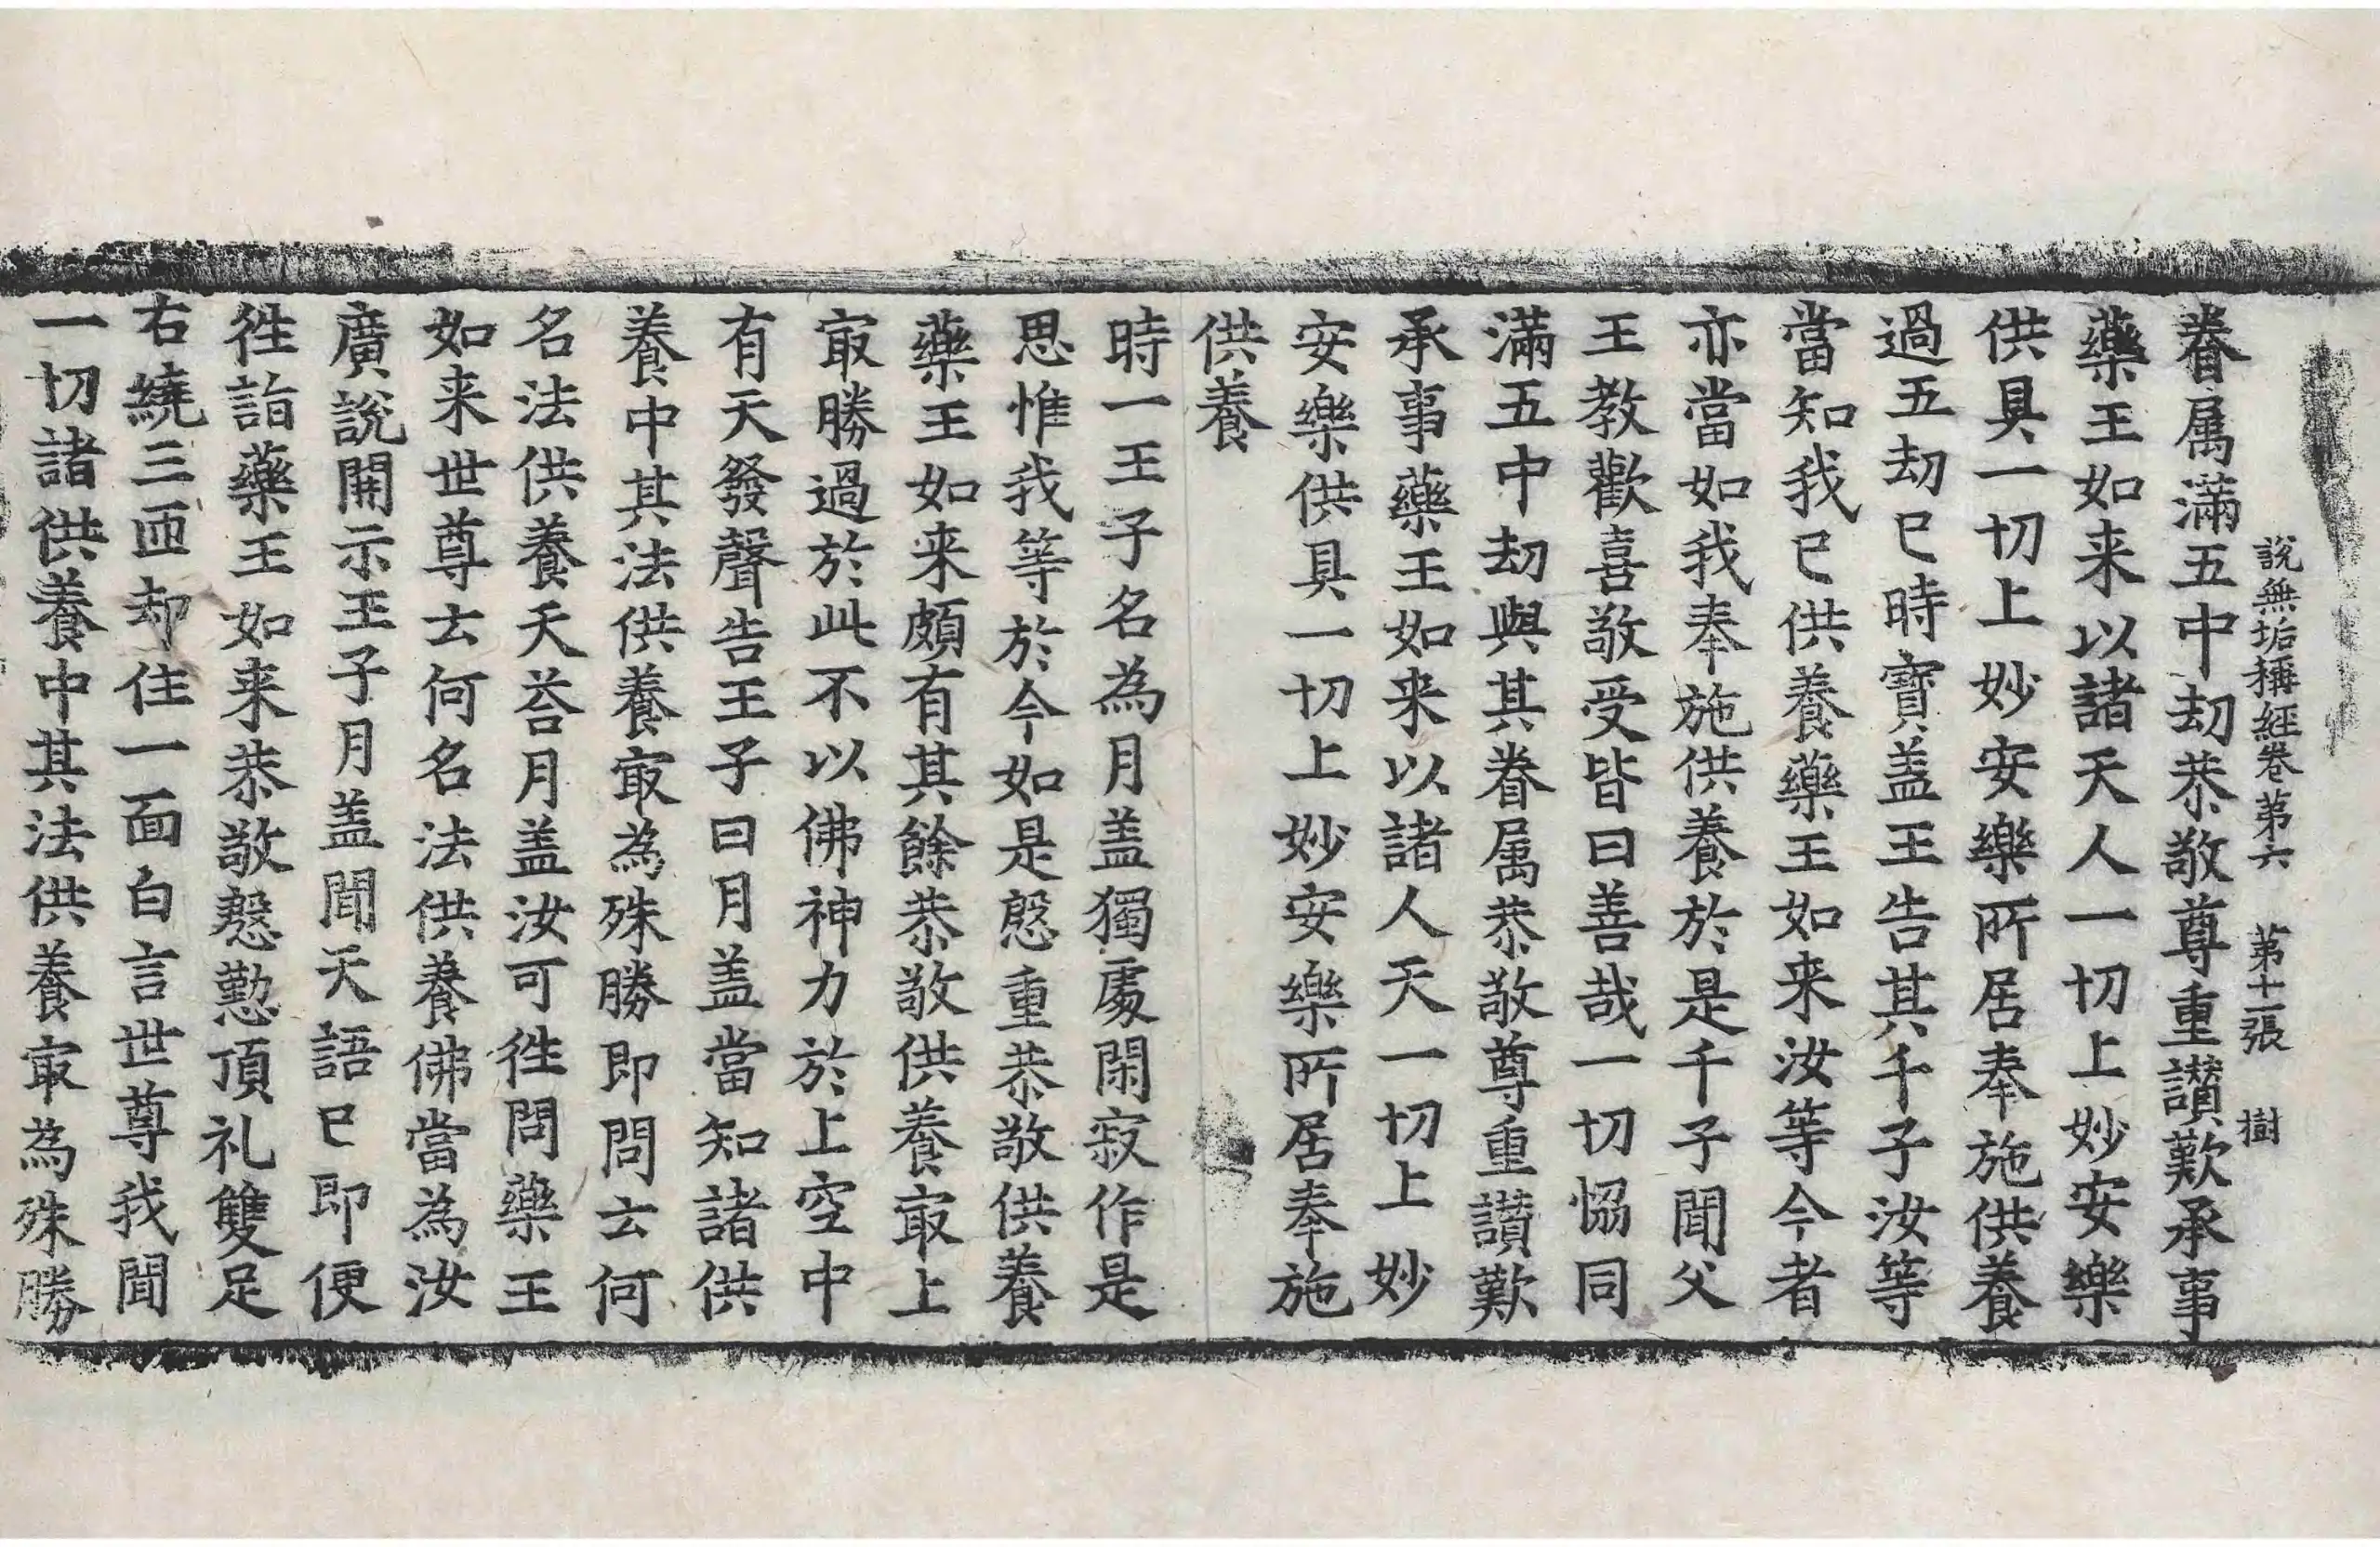 說無垢稱經卷第六 第十二張 樹
眷属滿五中劫恭敬尊重讃歎承事
藥王如来以諸天人一切上妙安樂
供具一切上妙安樂所居奉施供養
過五劫已時寶盖王告其千子汝等
當知我已供養藥王如来汝等今者
亦當如我奉施供養於是千子聞父
王教歡喜敬受皆曰善哉一切恊同
滿五中劫與其眷属恭敬尊重讃歎
承事藥王如来以諸人天一切上妙
安樂供具一切上妙安樂所居奉施
供養
時一王子名為月盖獨處閑寂作是
思惟我等於今如是慇重恭敬供養
藥王如来頗有其餘恭敬供養㝡上
㝡勝過於此不以佛神力於上空中
有天發聲告王子曰月盖當知諸供
養中其法供養㝡為殊勝即問云何
名法供養天荅月盖汝可徃問藥王
如来世尊云何名法供養佛當為汝
廣說開示王子月盖聞天語已即便
徃詣藥王如来恭敬慇懃頂礼雙足
右繞三匝却住一面白言世尊我聞
一切諸供養中其法供養㝡為殊勝